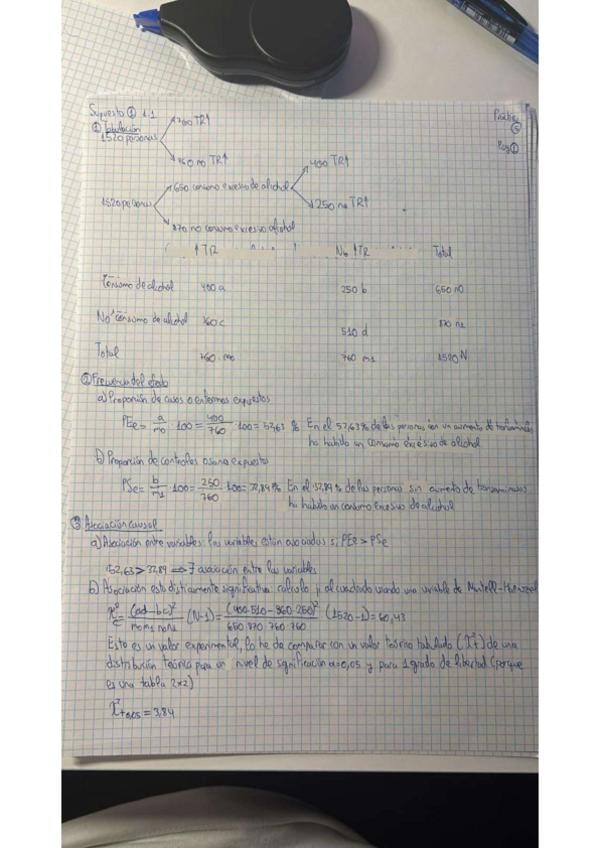 Supuesto ① 1.1
Práctica
⑤
① Tabulación
Pag ①
760 TR↑
1520 personas
760 no TR↑
400 TR↑
650 consumo excesivo de alcohol
1520 personas
250 no TR↑
870 no consumo excesivo alcohol
↑TR No ↑TR Total
Consumo de alcohol 400 a 250 b 650 n0
No consumo de alcohol 360 c 510 d 870 n1
Total 760 m0 760 m1 1520 N
② Frecuencia del efecto
a) Proporción de casos o enfermos expuestos
PEe = a/m0 · 100 = 400/760 · 100 = 52,63 % En el 52,63% de las personas con un aumento de transaminasas
ha habido un consumo excesivo de alcohol
b) Proporción de controles o sanos expuestos
PSe = b/m1 · 100 = 250/760 · 100 = 32,89% En el 32,89 % de las personas sin aumento de transaminasas
ha habido un consumo excesivo de alcohol
③ Asociación causal
a) Asociación entre variables: las variables están asociadas si PEe > PSe
52,63 > 32,89 ⟹ ∃ asociación entre las variables
b) Asociación estadísticamente significativa: calculo ji al cuadrado usando una variable de Mantell-Haenzel
χ²c = (ad-bc)²/m0m1n0n1 (N-1) = (400·510-360·250)²/650·870·760·760 (1520-1) = 60,43
Esto es un valor experimental, lo he de comparar con un valor teórico tabulado (χ²t) de una
distribución teórica para un nivel de significación α=0,05 y para 1 grado de libertad (porque
es una tabla 2x2)
χ²t 0,05 = 3,84